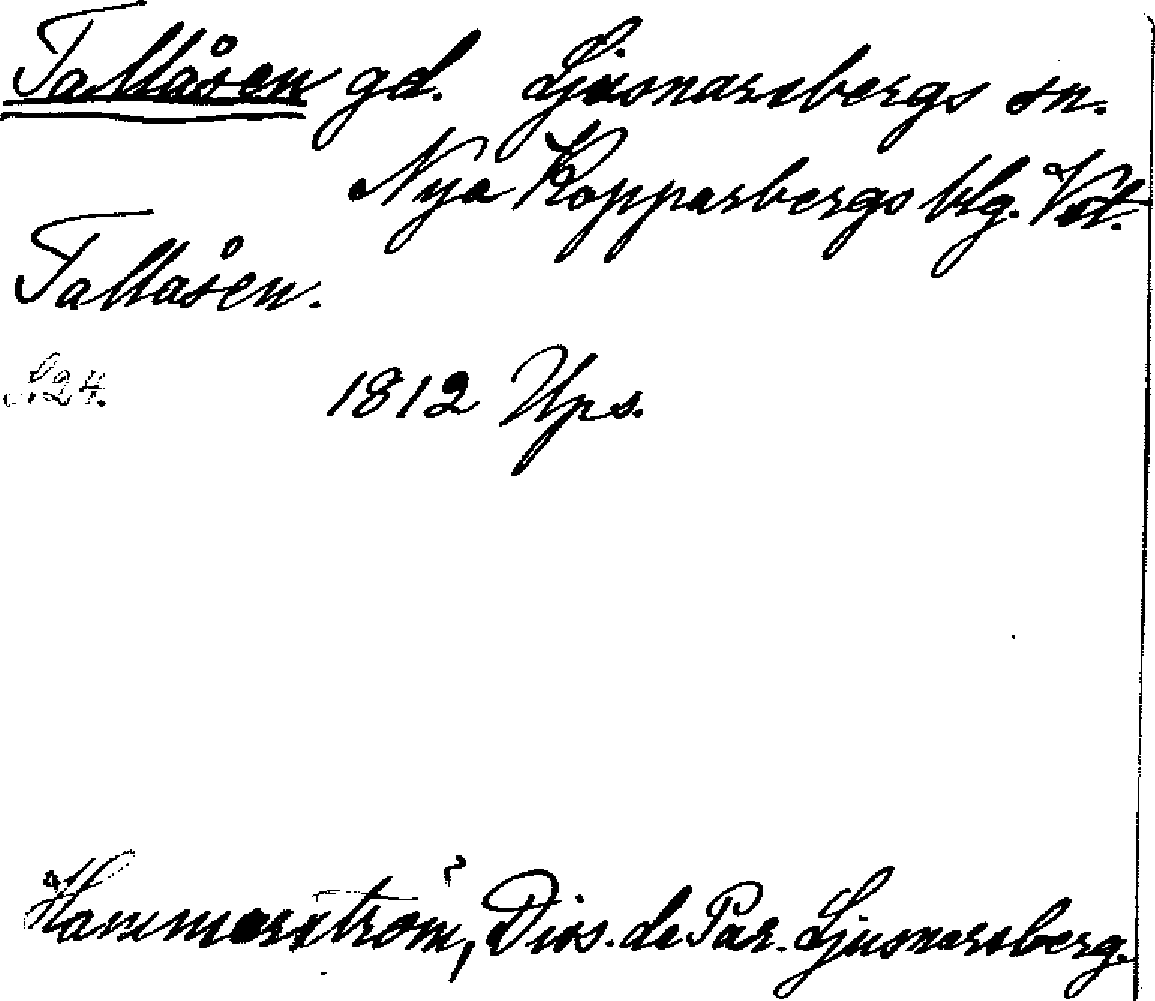 Tallåsen gd. Ljusnarsbergs sn.
Nya Kopparbergs blg. Vstl.
Tallåsen.
S. 24.
1812 Ups.
Hammarström, Diss. de Par. Ljusnarsberg.